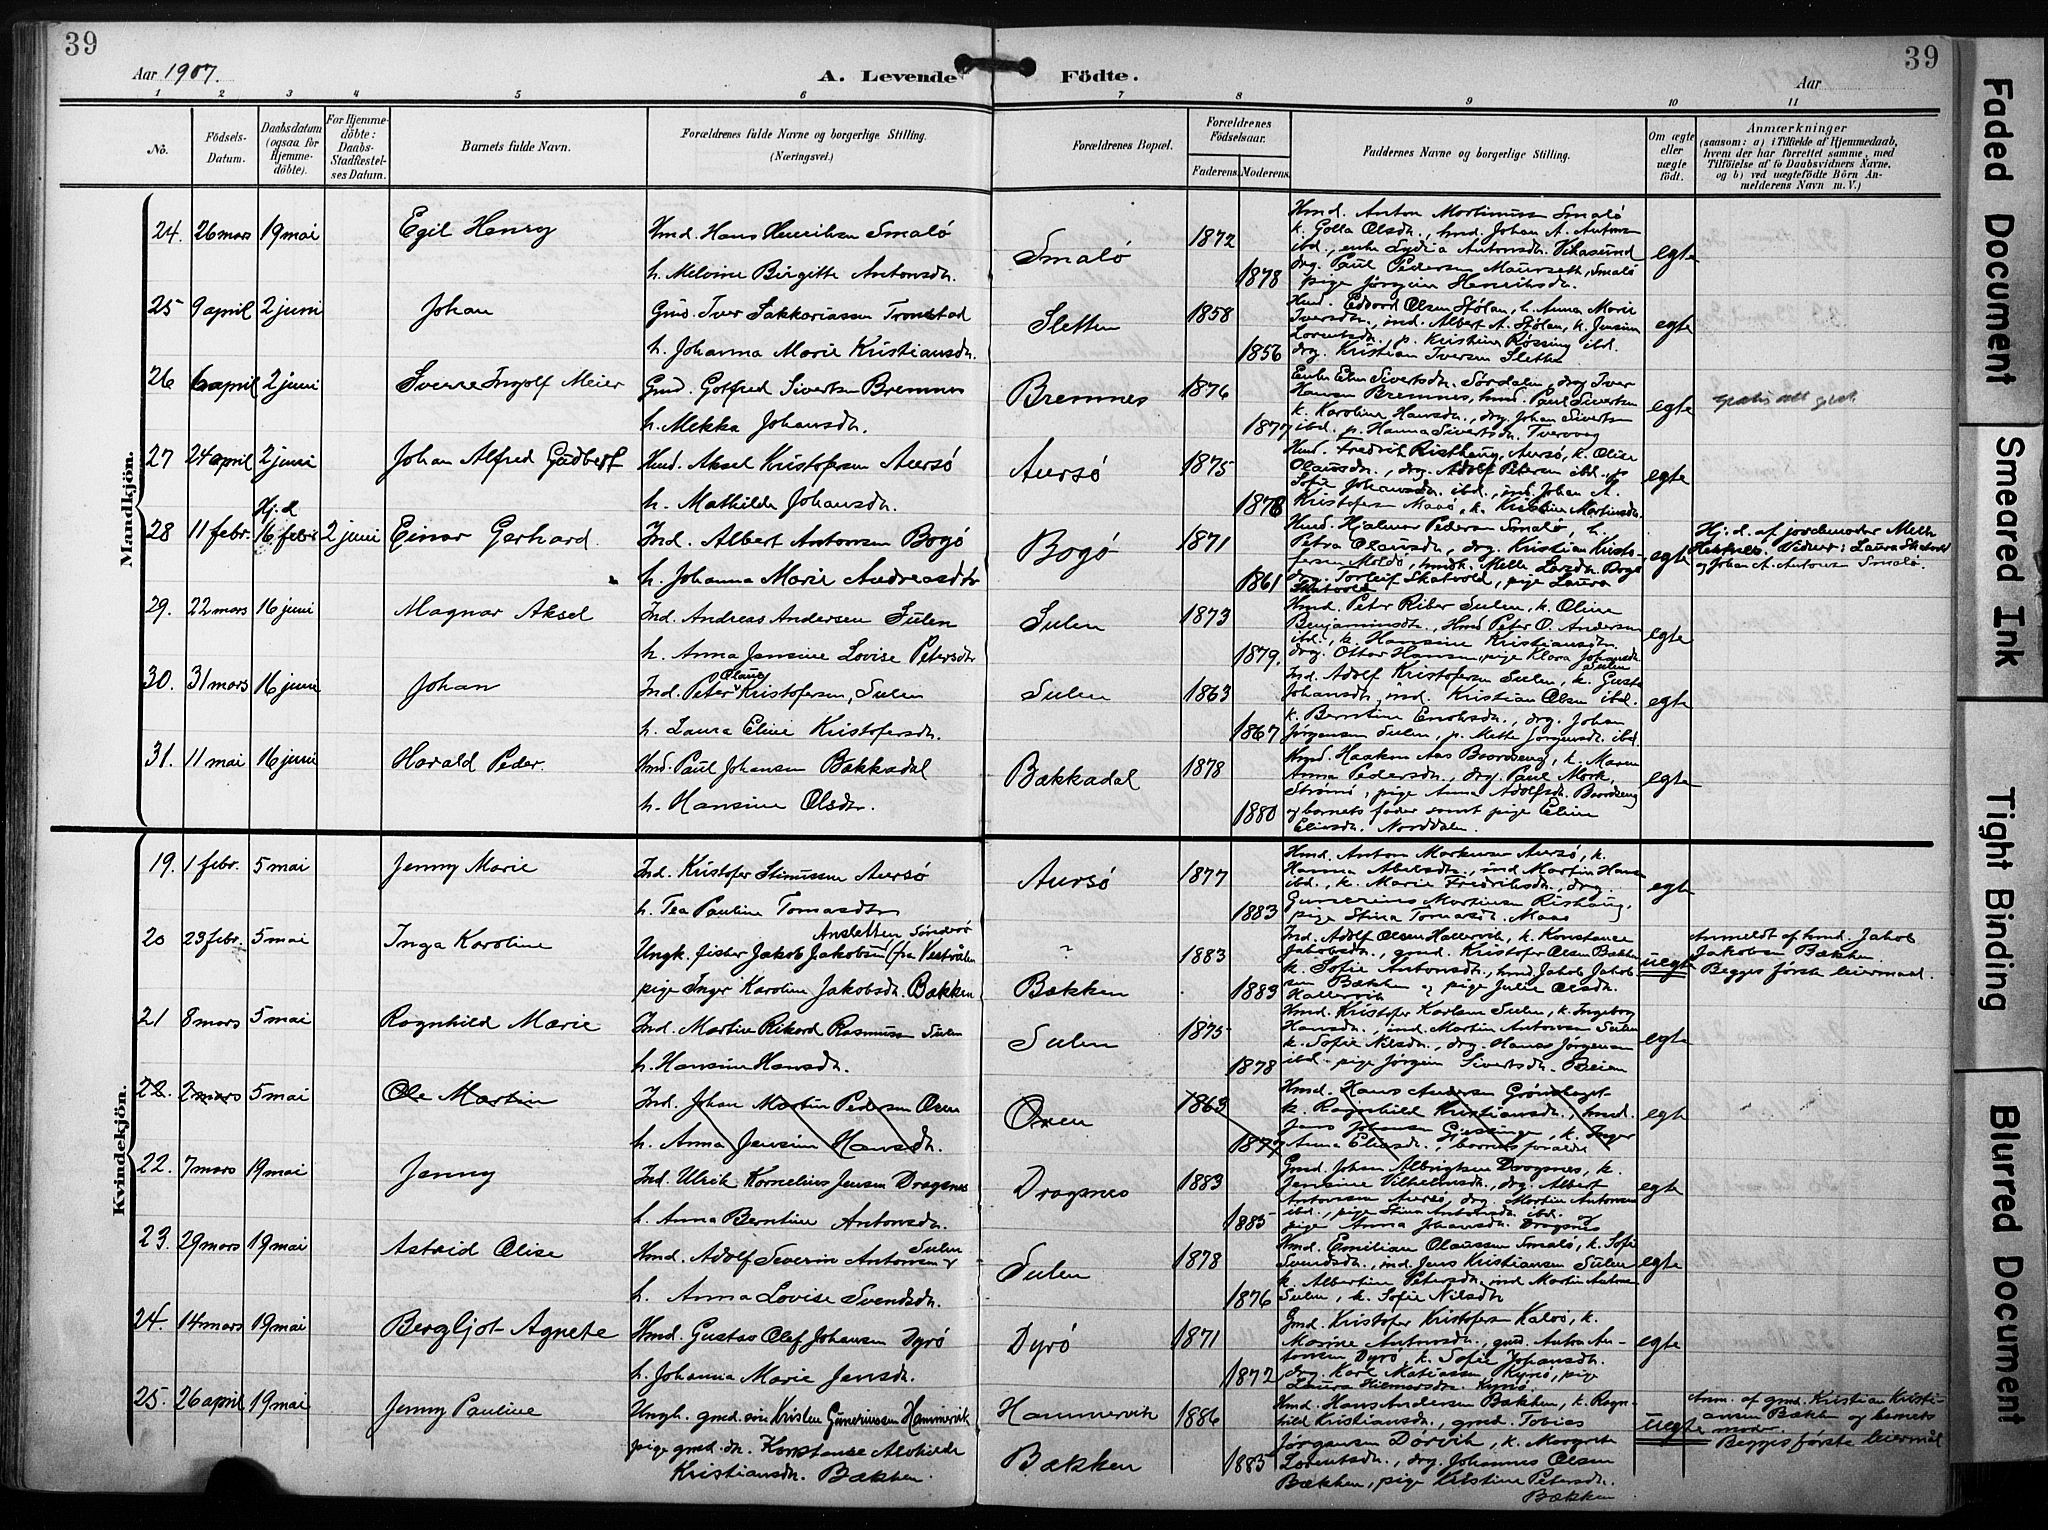 39
39
Aar 1907.
A. Levende Födte.
Aar
1 2 3 4 5 6 7 8 9 10 11
No.
Födsels-Datum.
Daabsdatum (ogsaa for Hjemmedöbte).
For Hjemmedöbte: Daabs-Stadfestelses Datum.
Barnets fulde Navn.
Forældrenes fulde Navne og borgerlige Stilling. (Næringsvei.)
Forældrenes Bopæl.
Forældrenes Födselsaar.
Faderens. Moderens.
Faddernes Navne og borgerlige Stilling.
Om ægte eller uægte födt.
Anmærkninger
(saasom: a) i Tilfælde af Hjemmedaab, hvem der har forrettet samme, med Tilföielse af to Daabsvidners Navne, og b) ved uægtefödte Börn Anmelderens Navn m. V.)
Mandkjön.
24. 26 mars 19 mai Egil Henry
Hmd. Hans Henriksen Smalö
h. Melvine Birgitte Antonsdtr.
Smalö 1872 1878
Hmd. Anton Mortinussen Smalö
k. Golla Olsdtr., hmd. Johan A. Antonsen
ibd., enke Lydia Antonsdtr. Vikasund
drg. Paul Pedersen Maurseth, Smalö
pige Jørgine Henriksdtr.
egte
25 9 april 2 juni Johan
Gmd. Iver Sakkariassen Tronstad
h. Johanna Marie Kristiansdtr.
Sletten 1858 1856
Hmd. Edvard Olsen Sjölan, k. Anna Marie
Iversdtr., ind. Albert A. Sjölan, k. Jensine
Lorentsdtr., p. Kristine Røssing ibd.
drg. Kristian Iversen Sletten
egte
26 6 april 2 juni Sverre Ingolf Meier
Gmd. Gotfred Sivertsen Bremnes
h. Mekka Johansdtr.
Bremnes 1876 1877
Enke Elen Sivertsdtr. Sørdalen, drg. Iver
Hansen Bremnes, hmd. Paul Sivertsen
k. Karoline Hansdtr., drg. Johan Sivertsen
ibd. p. Hanna Sivertsdtr. Tvervaag
egte
27 24 april 2 juni Johan Alfred Gudbert
Hmd. Aksel Kristofersen Aursö
h. Mathilde Johansdtr.
Aursö 1875 1876
Hmd. Fredrik Risthaug, Aursö, k. Oline
Olausdtr., drg. Adolf Petersen ibd., p.
Sofie Johansdtr. ibd., ind. Johan A.
Kristofersen Maasö, k. Kristine Martinsdtr.
egte
28 11 febr. Hj.d. 16 febr 2 juni Einar Gerhard.
Ind. Albert Antonsen Bogö
h. Johanna Marie Andreasdtr
Bogö 1871 1861
Hmd. Hjalmar Pedersen Smalö, k.
Petra Olausdtr., drg. Kristian Kristofersen
Moldö, hmdk. Melle Larsdtr. Bogö
drg. Torleif Skatvold, pige Laura
Skatvold
egte
Hj. d. af jordemoder Melle
Vidner: Laura Skatvold
og Johan A. Antonsen Smalö.
29. 22 mars 16 juni Magnar Aksel
Ind. Andreas Andersen Sulen
h. Anna Jensine Lovise Petersdtr
Sulen 1873 1879.
Hmd. Peter Riber Sulen, k. Oline
Benjaminsdtr., Hmd Peter O. Andersen
ibd., k. Hansine Kristiansdtr.
drg. Ottar Hansen, pige Klara Johansdtr
Sulen
egte
30. 31 mars 16 juni Johan
Ind. Peter Olaus Kristofersen, Sulen
h. Laura Eline Kristofersdtr.
Sulen 1863 1867
Ind. Adolf Kristofersen Sulen, k. Gusta
Johansdtr., ind. Kristian Olsen ibd.
k. Berntine Enoksdtr., drg. Johan
Jørgensen Sulen, p. Mette Jørgensdtr. ibd.
egte
31. 11 mai 16 juni Harald Peder.
Hmd. Paul Johansen Bakkadal
h. Hansine Olsdtr.
Bakkadal 1878 1880
Hmd. Haakon Aas Baardseng, k. Maren
Anna Pedersdtr., drg. Paul Mork,
Strømö, pige Anna Adolfsdtr. Baardseng
og barnets fader samt pige Eline
Eliasdtr. Norddalen.
egte
Kvindekjön.
19. 1 febr. 5 mai Jenny Marie
Ind. Kristofer Stinussen Aursö
h. Tea Pauline Tomasdtr
Aursö 1877 1883
Hmd. Anton Markussen Aursö, k.
Hanna Abelsdtr., ind Martin Hansen
ibd., k. Marie Fredriksdtr., drg.
Gunerius Martinsen Risthaug,
pige Stina Tomasdtr. Maasö
egte
20 23 febr. 5 mai Inga Karoline
Ungk. fisker Jakob Jakobsen Ansletten Sinderö (fra Vestrålen
pige Inger Karoline Jakobsdtr. Bækken
Bækken 1883 1883
Ind. Adolf Olsen Hallervik, k. Konstance
Jakobsdtr., gmd. Kristofer Olsen Bakken
k. Sofie Antonsdtr., hmd Jakob Jakobsen
Bækken og pige Julie Olsdtr.
Hallervik
uegte
Anmeldt af hmd. Jakob
Jakobsen Bækken.
Begges første leiermaal.
21 8 mars 5 mai Ragnhild Marie
Ind. Martin Rikard Rasmussen Sulen
h. Hansine Hansdtr.
Sulen 1875 1878
Hmd. Kristofer Karlsen Sulen, k. Ingeborg
Hansdtr., ind. Martin Antonsen Sulen
k. Sofie Nilsdtr., drg. Hans Jørgensen
ibd. pige Jørgine Sivertsdtr. Beien
egte
22. 2 mars 5 mai Ole Martin
Ind. Johan Martin Pedersen Oxen
h. Anna Jensine Hansdtr.
Oxen 1863 1877
Hmd. Hans Andersen Grønhaget
k. Ragnhild Kristiansdtr., hmd.
Jens Johansen Gjessingen, k. Inger
Anna Eliasdtr., barnets forældre
egte
22. 7 mars 19 mai Jenny
Ind. Ulrik Kornelius Jensen Dragsnes
h. Anna Berntine Antonsdtr.
Dragsnes 1883 1885
Gmd. Johan Albrigtsen Dragsnes, k.
Jensine Vilhelmsdtr., drg. Albert
Antonsen Aursö, drg. Martin Antonsen
ibd., pige Stina Antonsdtr. ibd. og
pige Anna Johansdtr. Dragsnes
egte
23. 29 mars 19 mai Astrid Olise
Hmd. Adolf Severin Antonsen Sulen
h. Anna Lovise Svendsdtr.
Sulen 1878 1876
Hmd. Emilian Olaussen Smalö, k. Sofie
Svendsdtr., ind. Jens Kristiansen Sulen
k. Albertine Petersdtr., ind Martin Antonsen
Sulen, k. Sofie Nilsdtr
egte
24. 14 mars 19 mai Bergljot Agnete
Hmd. Gustav Olaf Johansen Dyrö
h. Johanna Marie Jensdtr.
Dyrö 1871 1872
Gmd. Kristofer Kristofersen Kalvö, k.
Marine Antonsdtr., gmd. Anton Antonsen
Dyrö, k. Sofie Johansdtr.
drg. Karl Matiassen Kyrö, pige
Laura Hilmarsdtr. Kyrö.
egte
25. 26 april 19 mai Jenny Pauline
Ungk. gmd. søn Kristen Guneriussen Hammervik
pige gmd. dtr. Konstanse Alvhilde
Kristiansdtr. Bækken.
Hammervik 1886
Bækken 1883
Hmd. Hans Andersen Bakken, k. Ragnhild
Kristiansdtr., gmd. Tobias
Jørgensen Dørvik, k. Margrete
Lorentsdtr., drg. Johannes Olsen
Bækken, pige Kristine Petersdtr.
Bækken
uegte
Anm. af gmd. Kristian Kristiansen
Bækken og barnets
moder.
Begges første leiermål
Faded Document
Smeared Ink
Tight Binding
Blurred Document